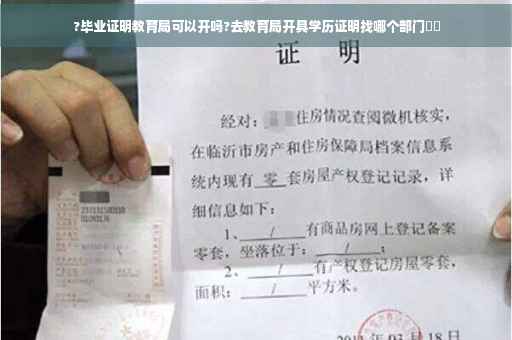 ?毕业证明教育局可以开吗?去教育局开具学历证明找哪个部门
证 明
经对: 住房情况查阅微机核实,
在临沂市房产和住房保障局档案信息系
统内现有 零 套房屋产权登记记录,详
细信息如下:
1、 / 有商品房网上登记备案
零套,坐落位于: / ;
2、 / 有产权登记房屋零套,
面积: / 平方米。
03 月 18 日